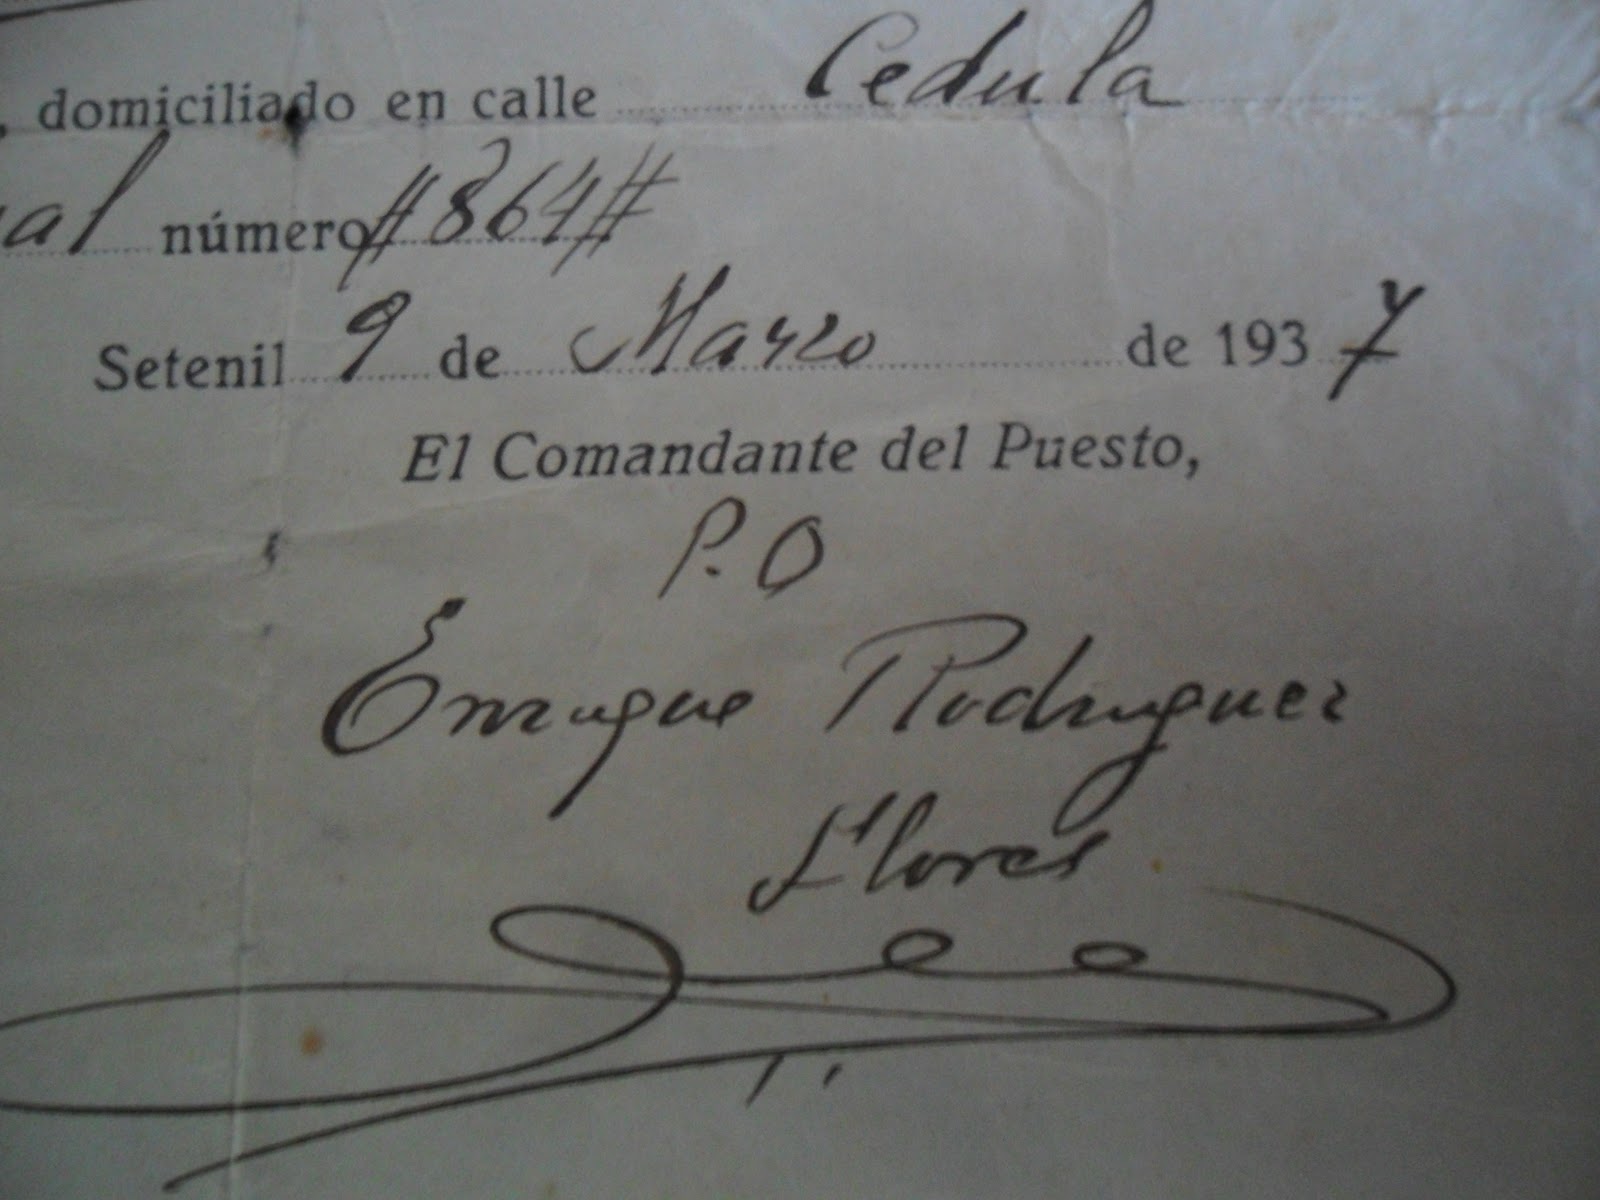 , domiciliado en calle Cedula
al número #864#
Setenil 9 de Marzo de 1937
El Comandante del Puesto,
P. O
Enrique Rodriguez
Flores